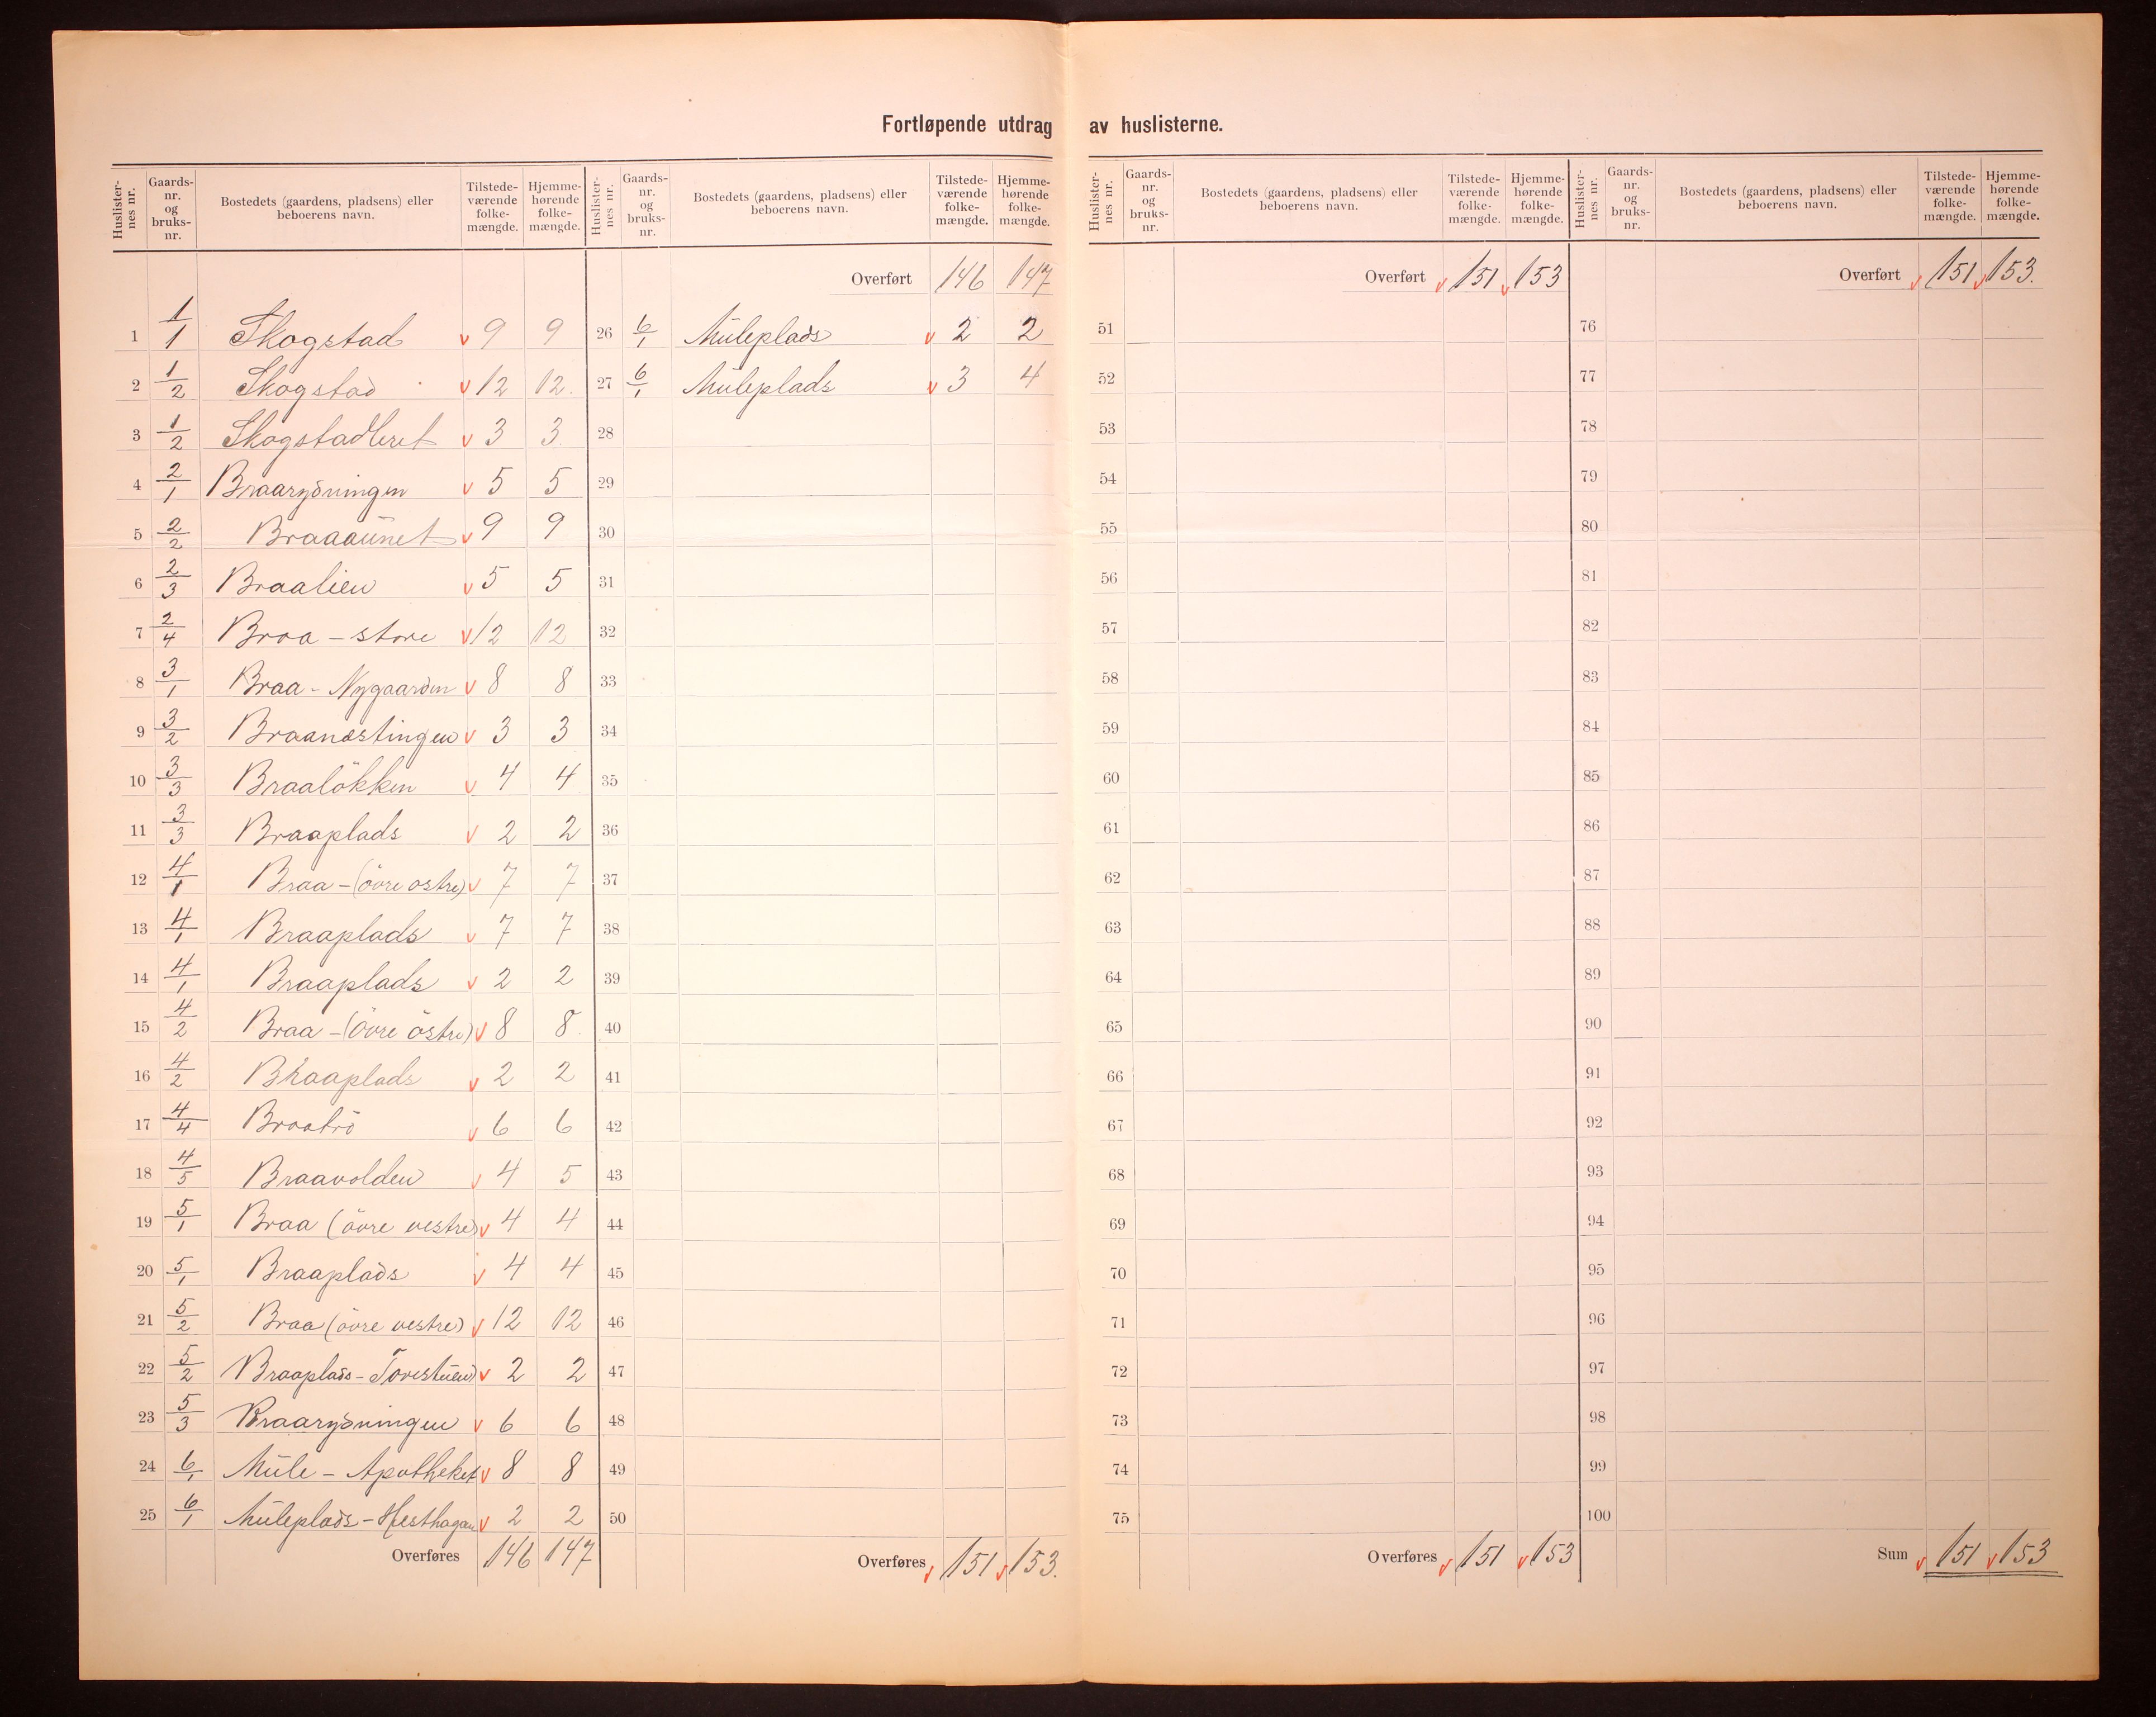 Fortløpende utdrag av huslisterne.
Huslister-nes nr. Gaards-nr. og bruks-nr. Bostedets (gaardens, pladsens) eller beboerens navn. Tilstede-værende folke-mængde. Hjemme-hørende folke-mængde.
1 1/1 Skogstad v 9 9
2 1/2 Skogstad v 12 12.
3 1/2 Skogstadleret v 3 3.
4 2/1 Braarydningen v 5 5
5 2/2 Braaaunet v 9 9
6 2/3 Braalien v 5 5
7 2/4 Braa - store v 12 12
8 3/1 Braa - Nygaarden v 8 8
9 3/2 Braanæstingen v 3 3
10 3/3 Braalökken v 4 4
11 3/3 Braaplads v 2 2
12 4/1 Braa - (övre östre) v 7 7
13 4/1 Braaplads v 7 7
14 4/1 Braaplads v 2 2
15 4/2 Braa - (övre östre) v 8 8.
16 4/2 Braaplads v 2 2
17 4/4 Braatrö v 6 6
18 4/5 Braavolden v 4 5
19 5/1 Braa (övre vestre) v 4 4
20 5/1 Braaplads v 4 4
21 5/2 Braa (övre vestre) v 12 12
22 5/2 Braaplads - Torestuen v 2 2
23 5/3 Braarydningen v 6 6
24 6/1 Mule - Apotheket v 8 8
25 6/1 Muleplads - Hesthagan v 2 2
Overføres 146 147
Huslister-nes nr. Gaards-nr. og bruks-nr. Bostedets (gaardens, pladsens) eller beboerens navn. Tilstede-værende folke-mængde. Hjemme-hørende folke-mængde.
Overført 146 147
26 6/1 Muleplads v 2 2
27 6/1 Muleplads v 3 4
28
29
30
31
32
33
34
35
36
37
38
39
40
41
42
43
44
45
46
47
48
49
50
Overføres v 151 v 153.
Huslister-nes nr. Gaards-nr. og bruks-nr. Bostedets (gaardens, pladsens) eller beboerens navn. Tilstede-værende folke-mængde. Hjemme-hørende folke-mængde.
Overført v 151 v 153
51
52
53
54
55
56
57
58
59
60
61
62
63
64
65
66
67
68
69
70
71
72
73
74
75
Overføres v 151 v 153
Huslister-nes nr. Gaards-nr. og bruks-nr. Bostedets (gaardens, pladsens) eller beboerens navn. Tilstede-værende folke-mængde. Hjemme-hørende folke-mængde.
Overført v 151 v 153.
76
77
78
79
80
81
82
83
84
85
86
87
88
89
90
91
92
93
94
95
96
97
98
99
100
Sum v 151 v 153